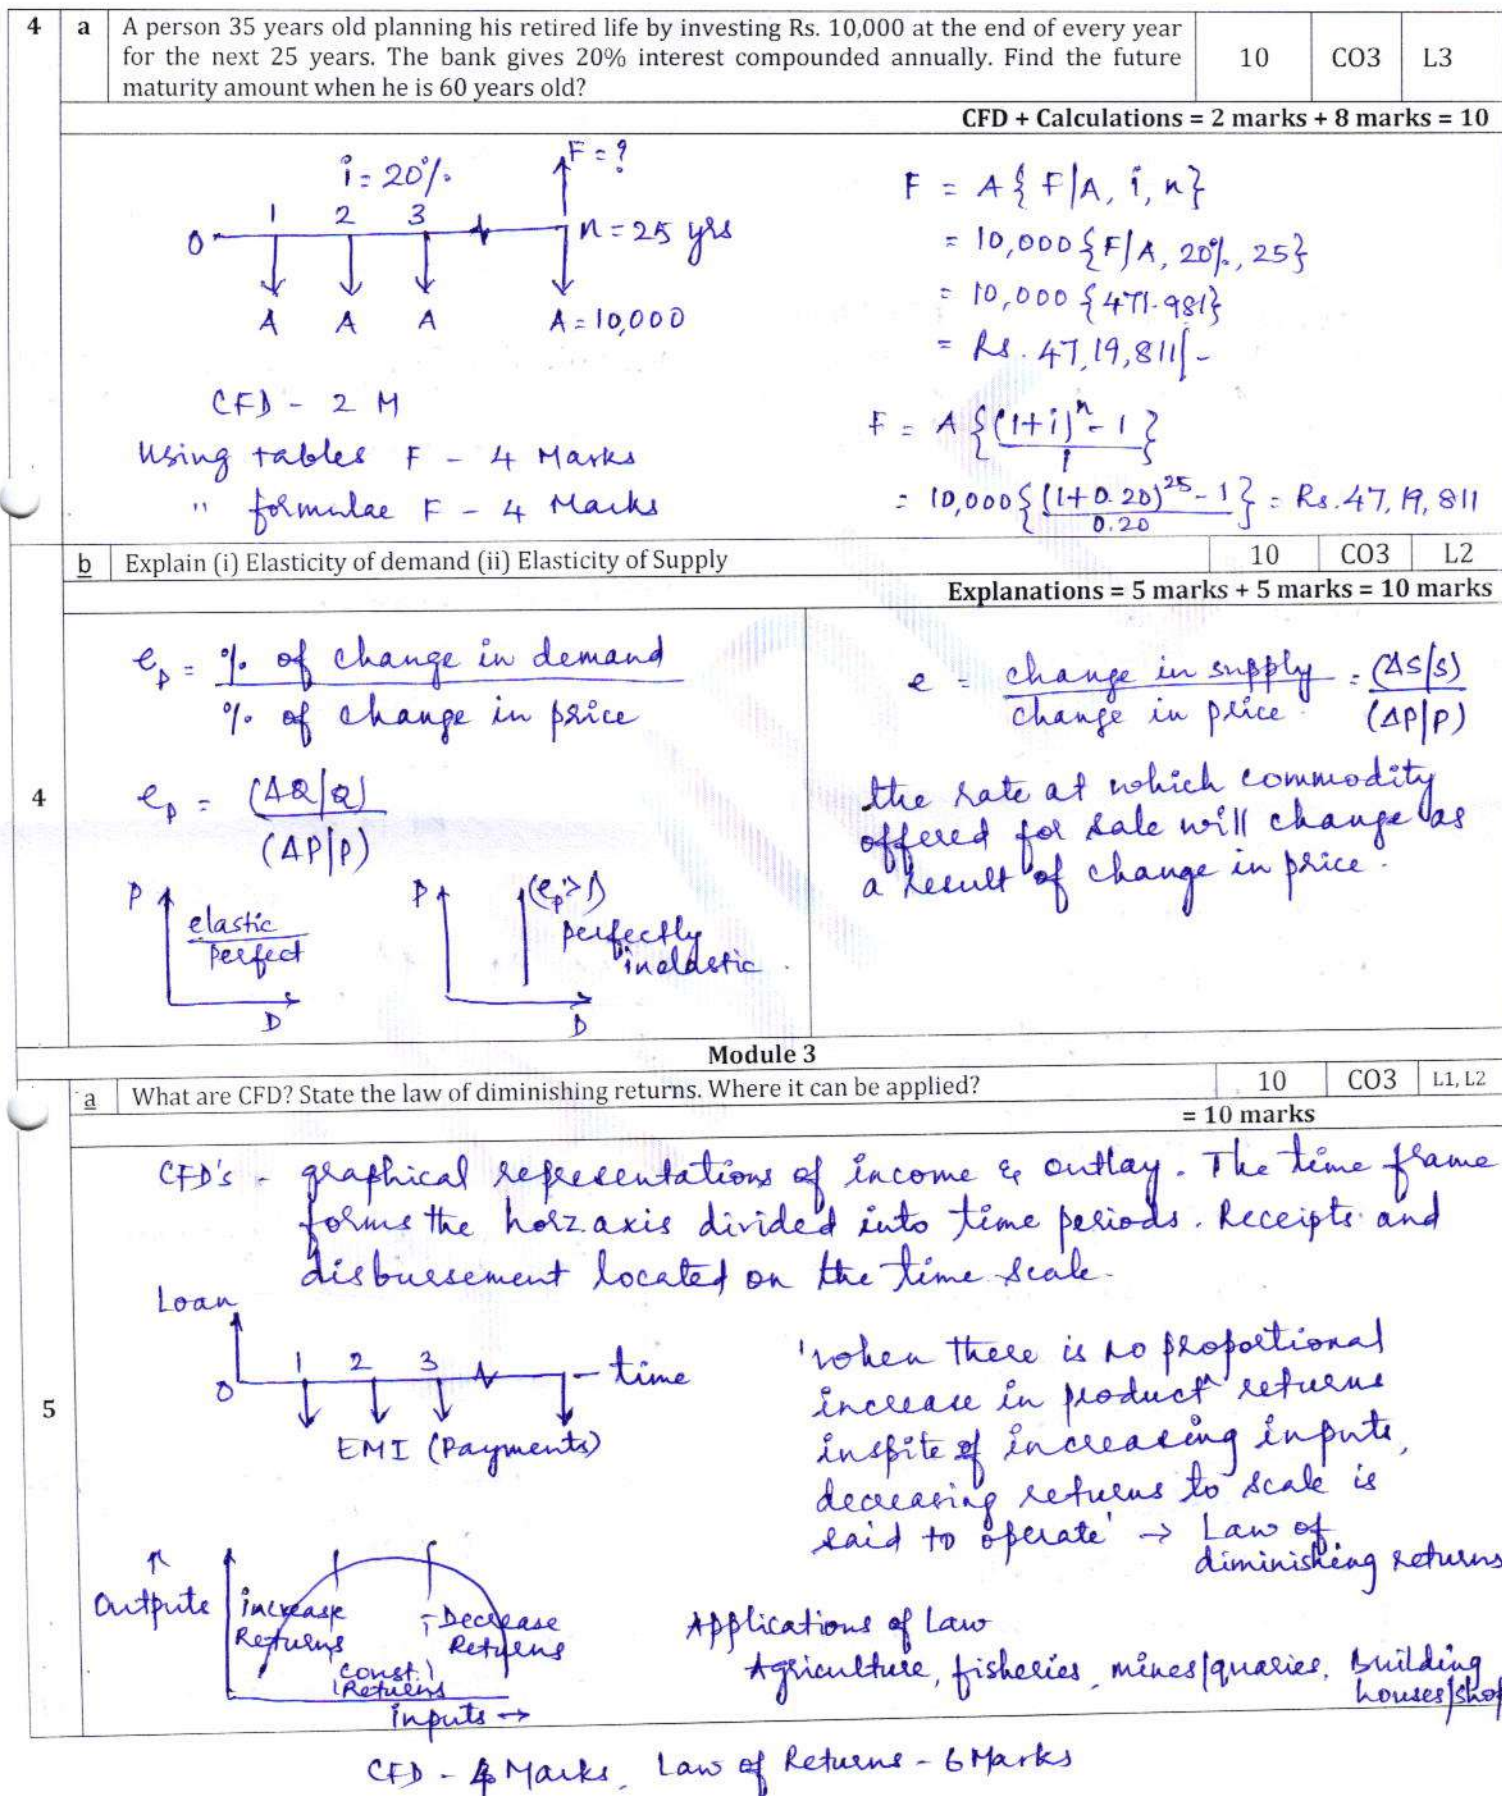 4 a A person 35 years old planning his retired life by investing Rs. 10,000 at the end of every year
for the next 25 years. The bank gives 20% interest compounded annually. Find the future 10 CO3 L3
maturity amount when he is 60 years old?
CFD + Calculations = 2 marks + 8 marks = 10
i = 20%
F = ?
0 1 2 3 n = 25 yrs
A A A A = 10,000
F = A { F/A, i, n}
= 10,000 {F/A, 20%, 25}
= 10,000 {471.981}
= Rs. 47,19,811/-
CFD - 2 M
Using tables F - 4 Marks
" formulae F - 4 Marks
F = A {(1+i)^n - 1 / i}
= 10,000 {(1+0.20)^25 - 1 / 0.20} = Rs. 47,19,811
b Explain (i) Elasticity of demand (ii) Elasticity of Supply 10 CO3 L2
Explanations = 5 marks + 5 marks = 10 marks
4
e_p = % of change in demand
% of change in price
e_p = (ΔQ/Q)
(ΔP/P)
P elastic
perfect
D
P (e_p>1)
perfectly
inelastic
D
e = change in supply = (ΔS/S)
change in price. (ΔP/P)
the rate at which commodity
offered for sale will change as
a result of change in price.
Module 3
a What are CFD? State the law of diminishing returns. Where it can be applied? 10 CO3 L1, L2
= 10 marks
5
CFD's - graphical representations of income & outlay. The time frame
forms the horz axis divided into time periods. Receipts and
disbursement located on the time scale.
Loan
0 1 2 3 - time
EMI (Payments)
'when there is no proportional
increase in product returns
inspite of increasing inputs,
decreasing returns to scale is
said to operate' → Law of
diminishing returns
↑
Outputs
increase
Returns
const.
Returns
Decrease
Returns
inputs →
Applications of Law
Agriculture, fisheries, mines/quaries, Building
houses/shop
CFD - 4 Marks, Law of Returns - 6 Marks